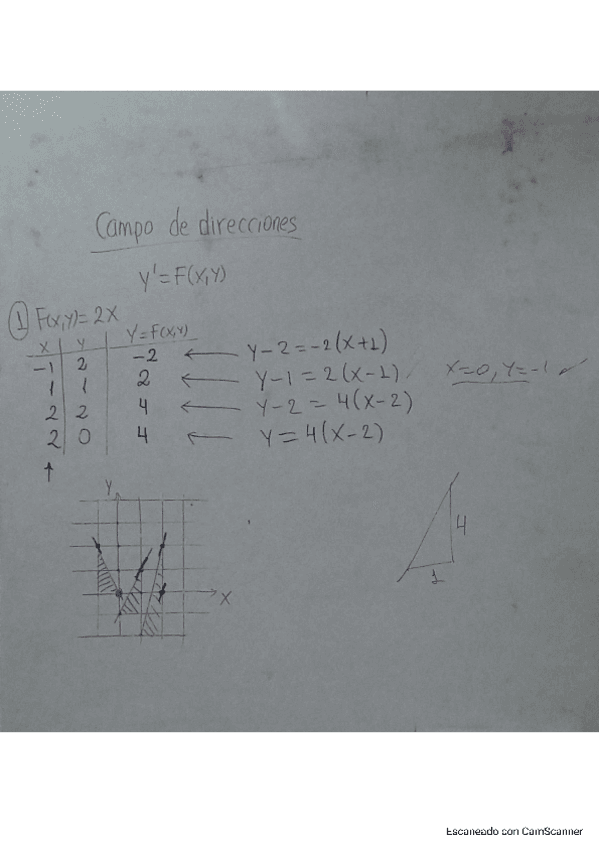 Campo de direcciones
Y' = F(X,Y)
① F(X,Y) = 2X
X Y Y=F(X,Y)
-1 2 -2 ← Y-2 = -2(X+1)
1 1 2 ← Y-1 = 2(X-1) X=0, Y=-1 ✓
2 2 4 ← Y-2 = 4(X-2)
2 0 4 ← Y = 4(X-2)
↑
Y
X
4
1
Escaneado con CamScanner